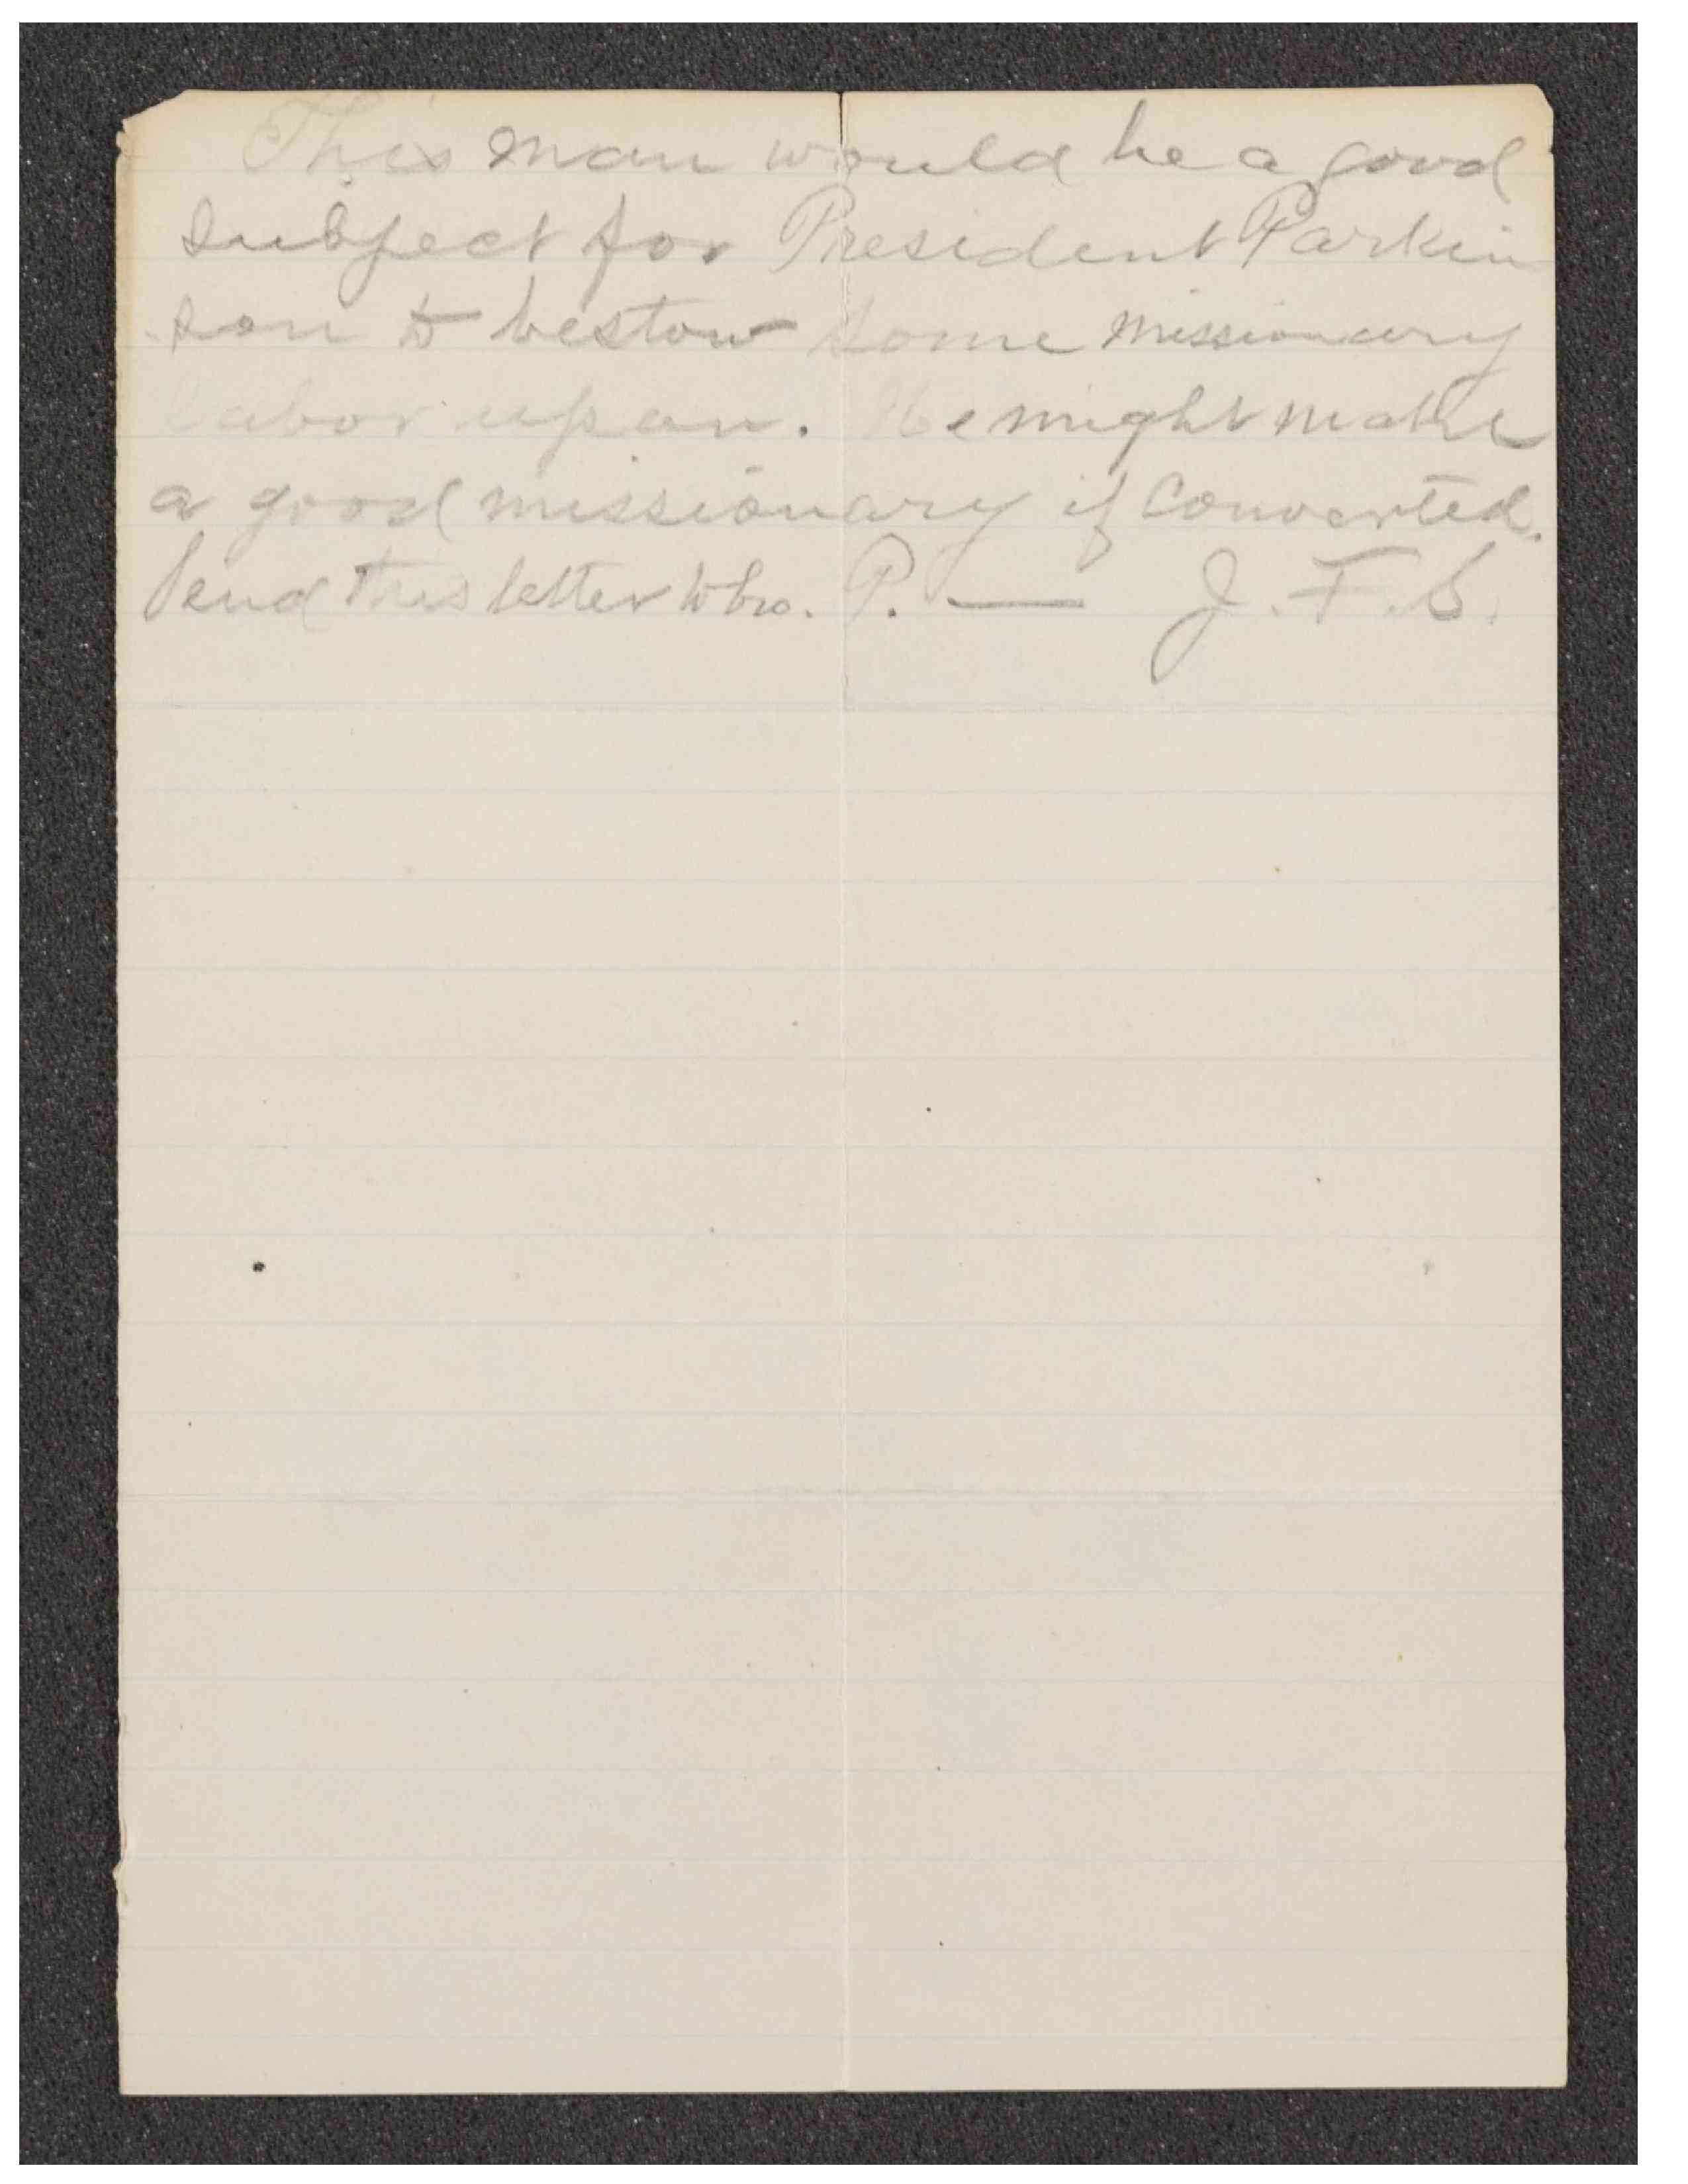 This man would be a good
subject for President Parkin
son to bestow some missionary
labor upon. He might make
a good missionary if converted.
Send this letter to bro. P. — J. F. S.